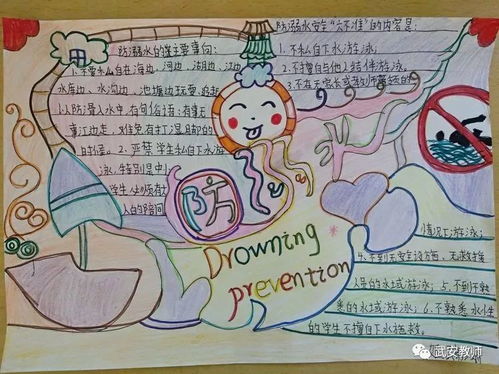 防溺水的集主要事向:
1.不要私自在海边、河边、湖边、江边
水库边、水沟边、池塘边玩耍、追赶
以防滑入水中,有句俗语:有事无
事江边走,难免有打湿脚
的时候。2.严禁学生私自下水游
泳,特别是中小
学生必须有大
人的陪同
防溺水安全“六不准”的内容是:
1.不私自下水游泳;
2.不擅自与他人结伴游泳,
3.不在无家长或教师带领的
情况下游泳;
4.不到无安全设施、无救援
人员的水域游泳;5.不到不熟
悉的水域游泳;6.不熟悉水性
的学生不擅自下水施救。
防溺水
Drowning
prevention
武安教师